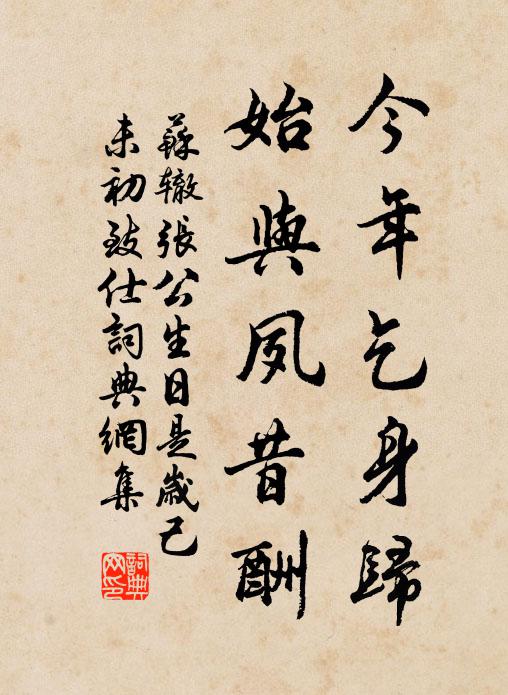 今年乞身歸
始與夙昔酬
蘇辙張公生日是歲己
未初致仕詞典網集
詞典网印